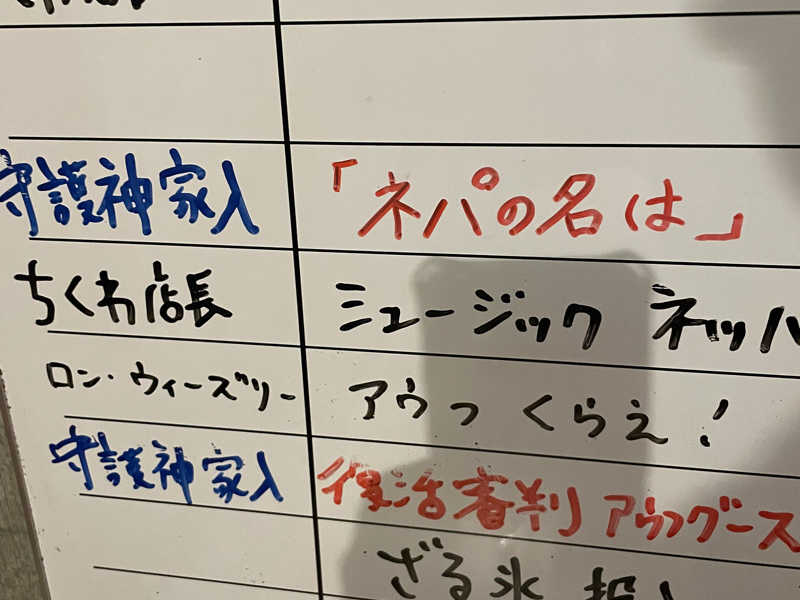 守護神家入 「ネパの名は」
ちくわ店長 ミュージック ネッパ
ロン・ウィーズリー アウっ くらえ!
守護神家入 復活審判 アウフグース
ざる氷